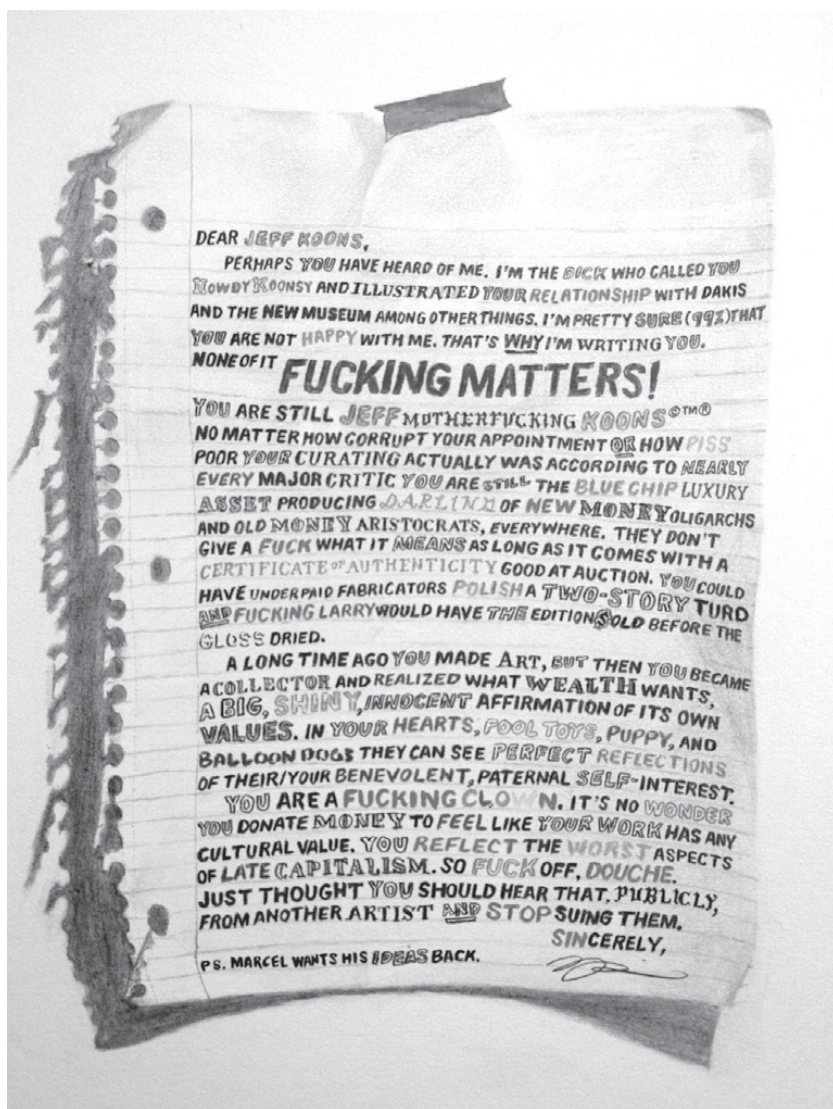 DEAR JEFF KOONS,
PERHAPS YOU HAVE HEARD OF ME. I'M THE DICK WHO CALLED YOU
HOWDY KOONSY AND ILLUSTRATED YOUR RELATIONSHIP WITH DAKIS
AND THE NEW MUSEUM AMONG OTHER THINGS. I'M PRETTY SURE (99%) THAT
YOU ARE NOT HAPPY WITH ME. THAT'S WHY I'M WRITING YOU.
NONE OF IT FUCKING MATTERS!
YOU ARE STILL JEFF MOTHERFUCKING KOONS©™®
NO MATTER HOW CORRUPT YOUR APPOINTMENT OR HOW PISS
POOR YOUR CURATING ACTUALLY WAS ACCORDING TO NEARLY
EVERY MAJOR CRITIC YOU ARE STILL THE BLUE CHIP LUXURY
ASSET PRODUCING DARLING OF NEW MONEY OLIGARCHS
AND OLD MONEY ARISTOCRATS, EVERYWHERE. THEY DON'T
GIVE A FUCK WHAT IT MEANS AS LONG AS IT COMES WITH A
CERTIFICATE OF AUTHENTICITY GOOD AT AUCTION. YOU COULD
HAVE UNDERPAID FABRICATORS POLISH A TWO-STORY TURD
AND FUCKING LARRY WOULD HAVE THE EDITION $OLD BEFORE THE
GLOSS DRIED.
A LONG TIME AGO YOU MADE ART, BUT THEN YOU BECAME
A COLLECTOR AND REALIZED WHAT WEALTH WANTS,
A BIG, SHINY, INNOCENT AFFIRMATION OF ITS OWN
VALUES. IN YOUR HEARTS, POOL TOYS, PUPPY, AND
BALLOON DOGS THEY CAN SEE PERFECT REFLECTIONS
OF THEIR/YOUR BENEVOLENT, PATERNAL SELF-INTEREST.
YOU ARE A FUCKING CLOWN. IT'S NO WONDER
YOU DONATE MONEY TO FEEL LIKE YOUR WORK HAS ANY
CULTURAL VALUE. YOU REFLECT THE WORST ASPECTS
OF LATE CAPITALISM. SO FUCK OFF, DOUCHE.
JUST THOUGHT YOU SHOULD HEAR THAT. PUBLICLY,
FROM ANOTHER ARTIST AND STOP SUING THEM.
SINCERELY,
PS. MARCEL WANTS HIS IDEAS BACK.